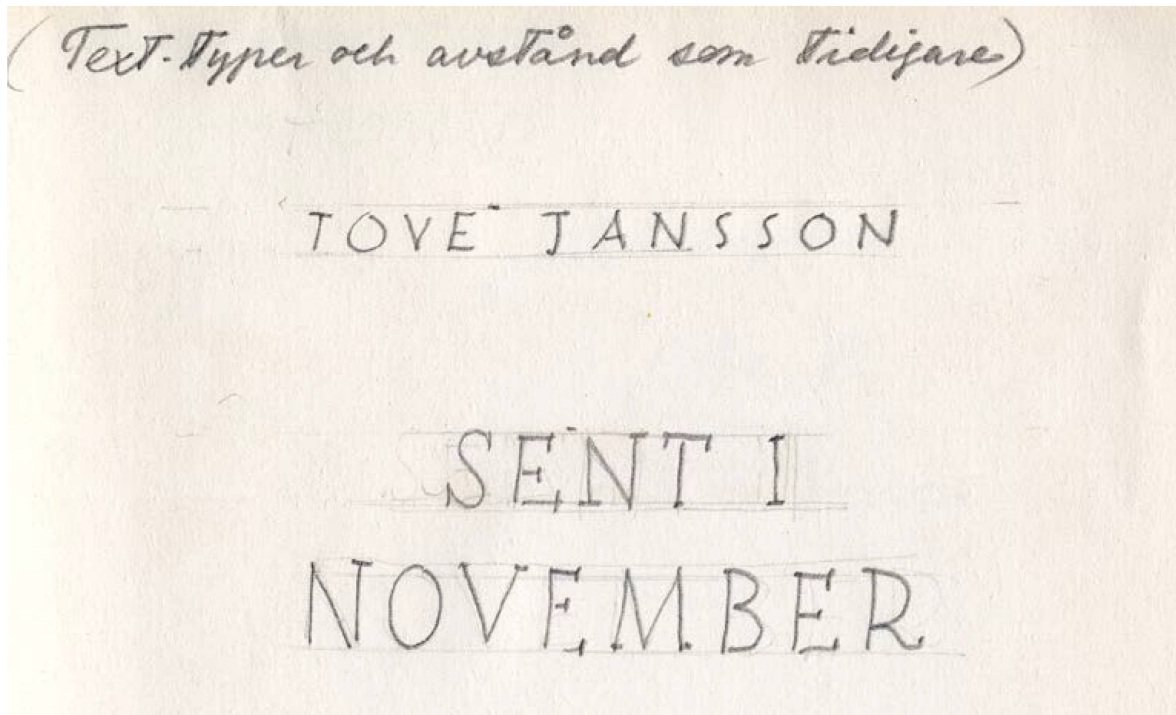 (Text-typer och avstånd som tidigare)
TOVE JANSSON
SENT I
NOVEMBER